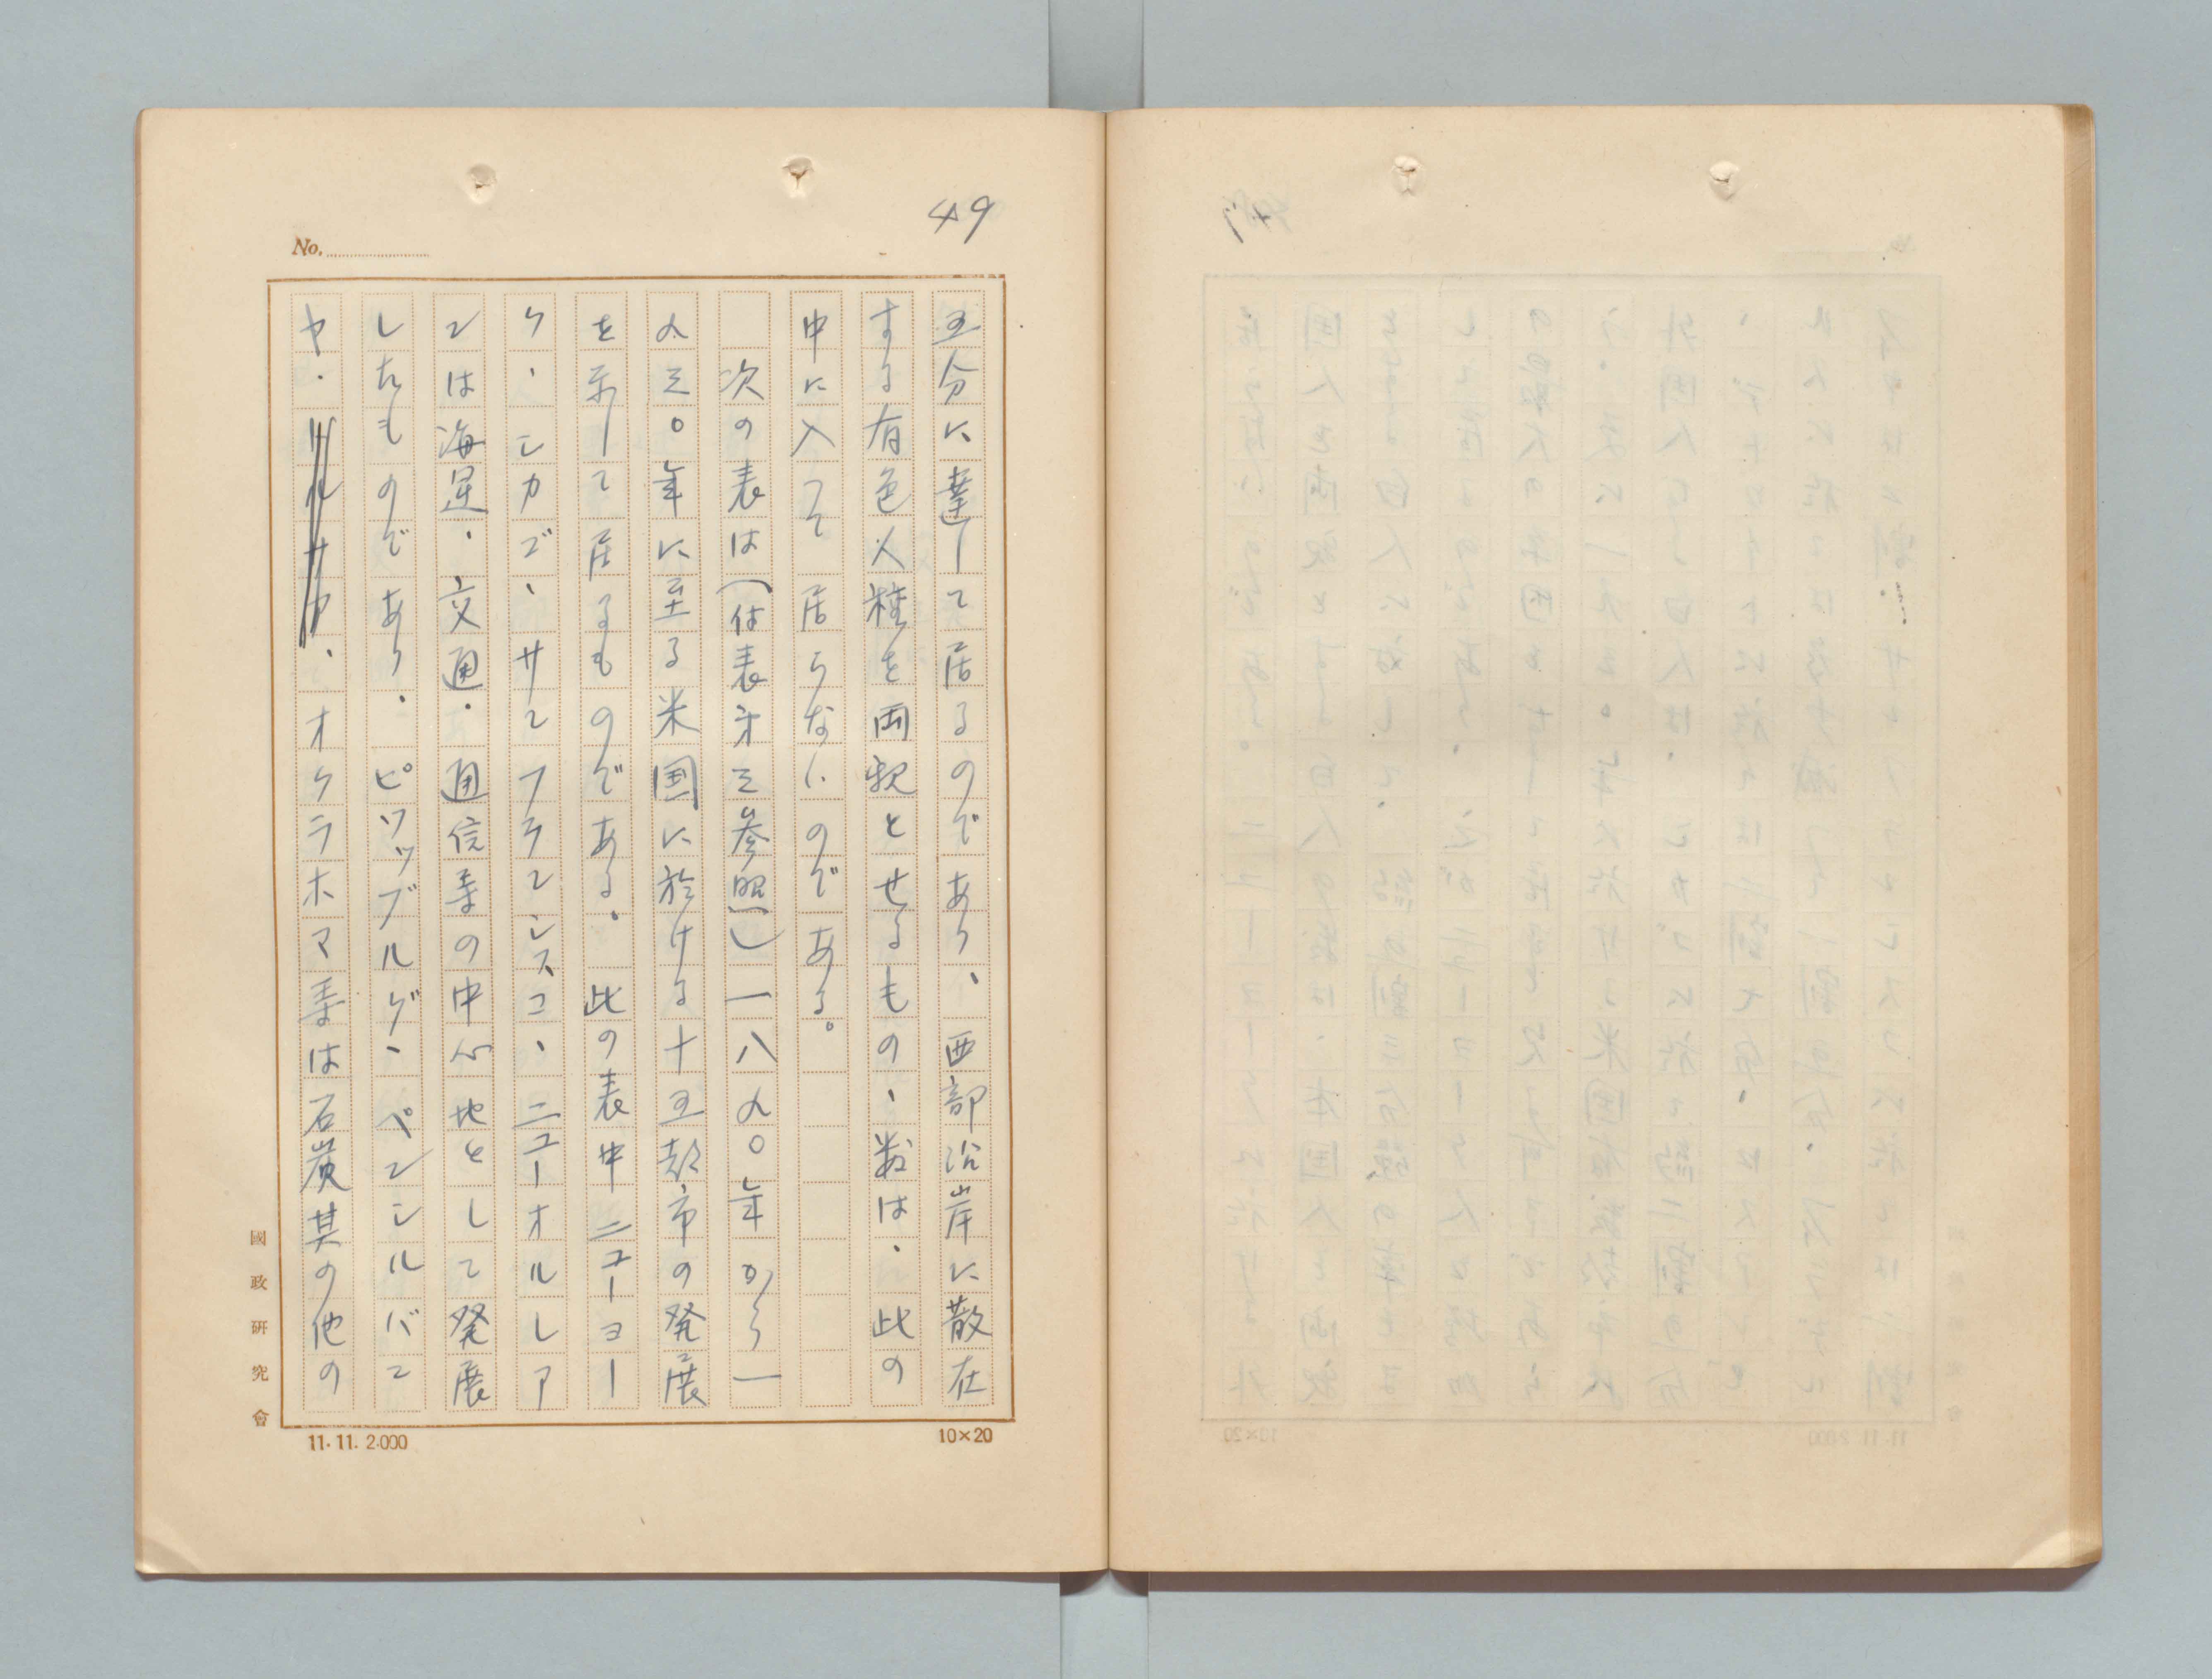 49
No.
五分に達して居るのであり、西部沿岸に散在
する有色人種を両親とせるもの、数は、此の
中に入つて居らないのである。
次の表は(付表才三参照)一八八〇年から一
九三〇年に至る米国に於ける十五都市の発展
を示して居るものである。此の表中ニューヨー
ク、シカゴ、サンフランシスコ、ニューオルレア
ンは海運、交通、通信等の中心地として発展
したものであり、ピッツブルグ、ペンシルバニ
ヤ、オクラホマ等は石炭其の他の
國政研究會
11.11.2.000
10×20